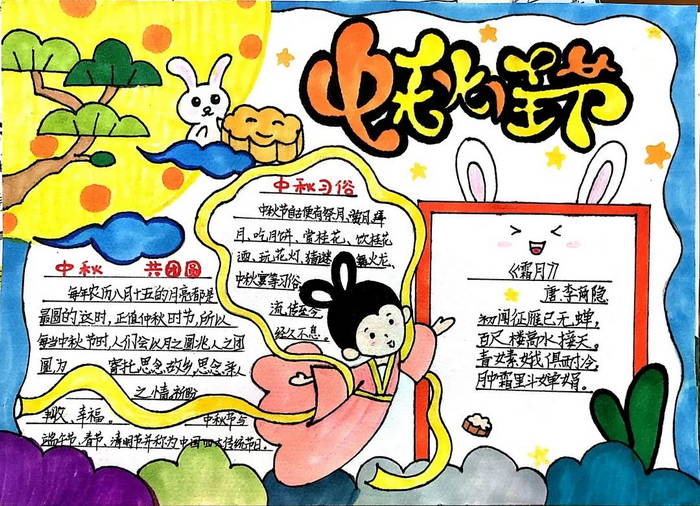 中秋佳节
中秋习俗
中秋节自便有祭月、赏月、拜
月、吃月饼、赏桂花、饮桂花
酒、玩花灯、猜谜、舞火龙、
中秋宴等习俗,
流传至今
经久不息。
中秋 共团圆
每年农历八月十五的月亮都是
最圆的这时,正值仲秋时节,所以
每当中秋节时人们会以月之圆兆人之团
圆为 寄托思念故乡,思念亲人
之情,祈盼
丰收、幸福。 中秋节与
端午节、春节、清明节并称为中国四大传统节日。
《霜月》
唐.李商隐
初闻征雁已无蝉,
百尺楼高水接天。
青女素娥俱耐冷,
月中霜里斗婵娟。